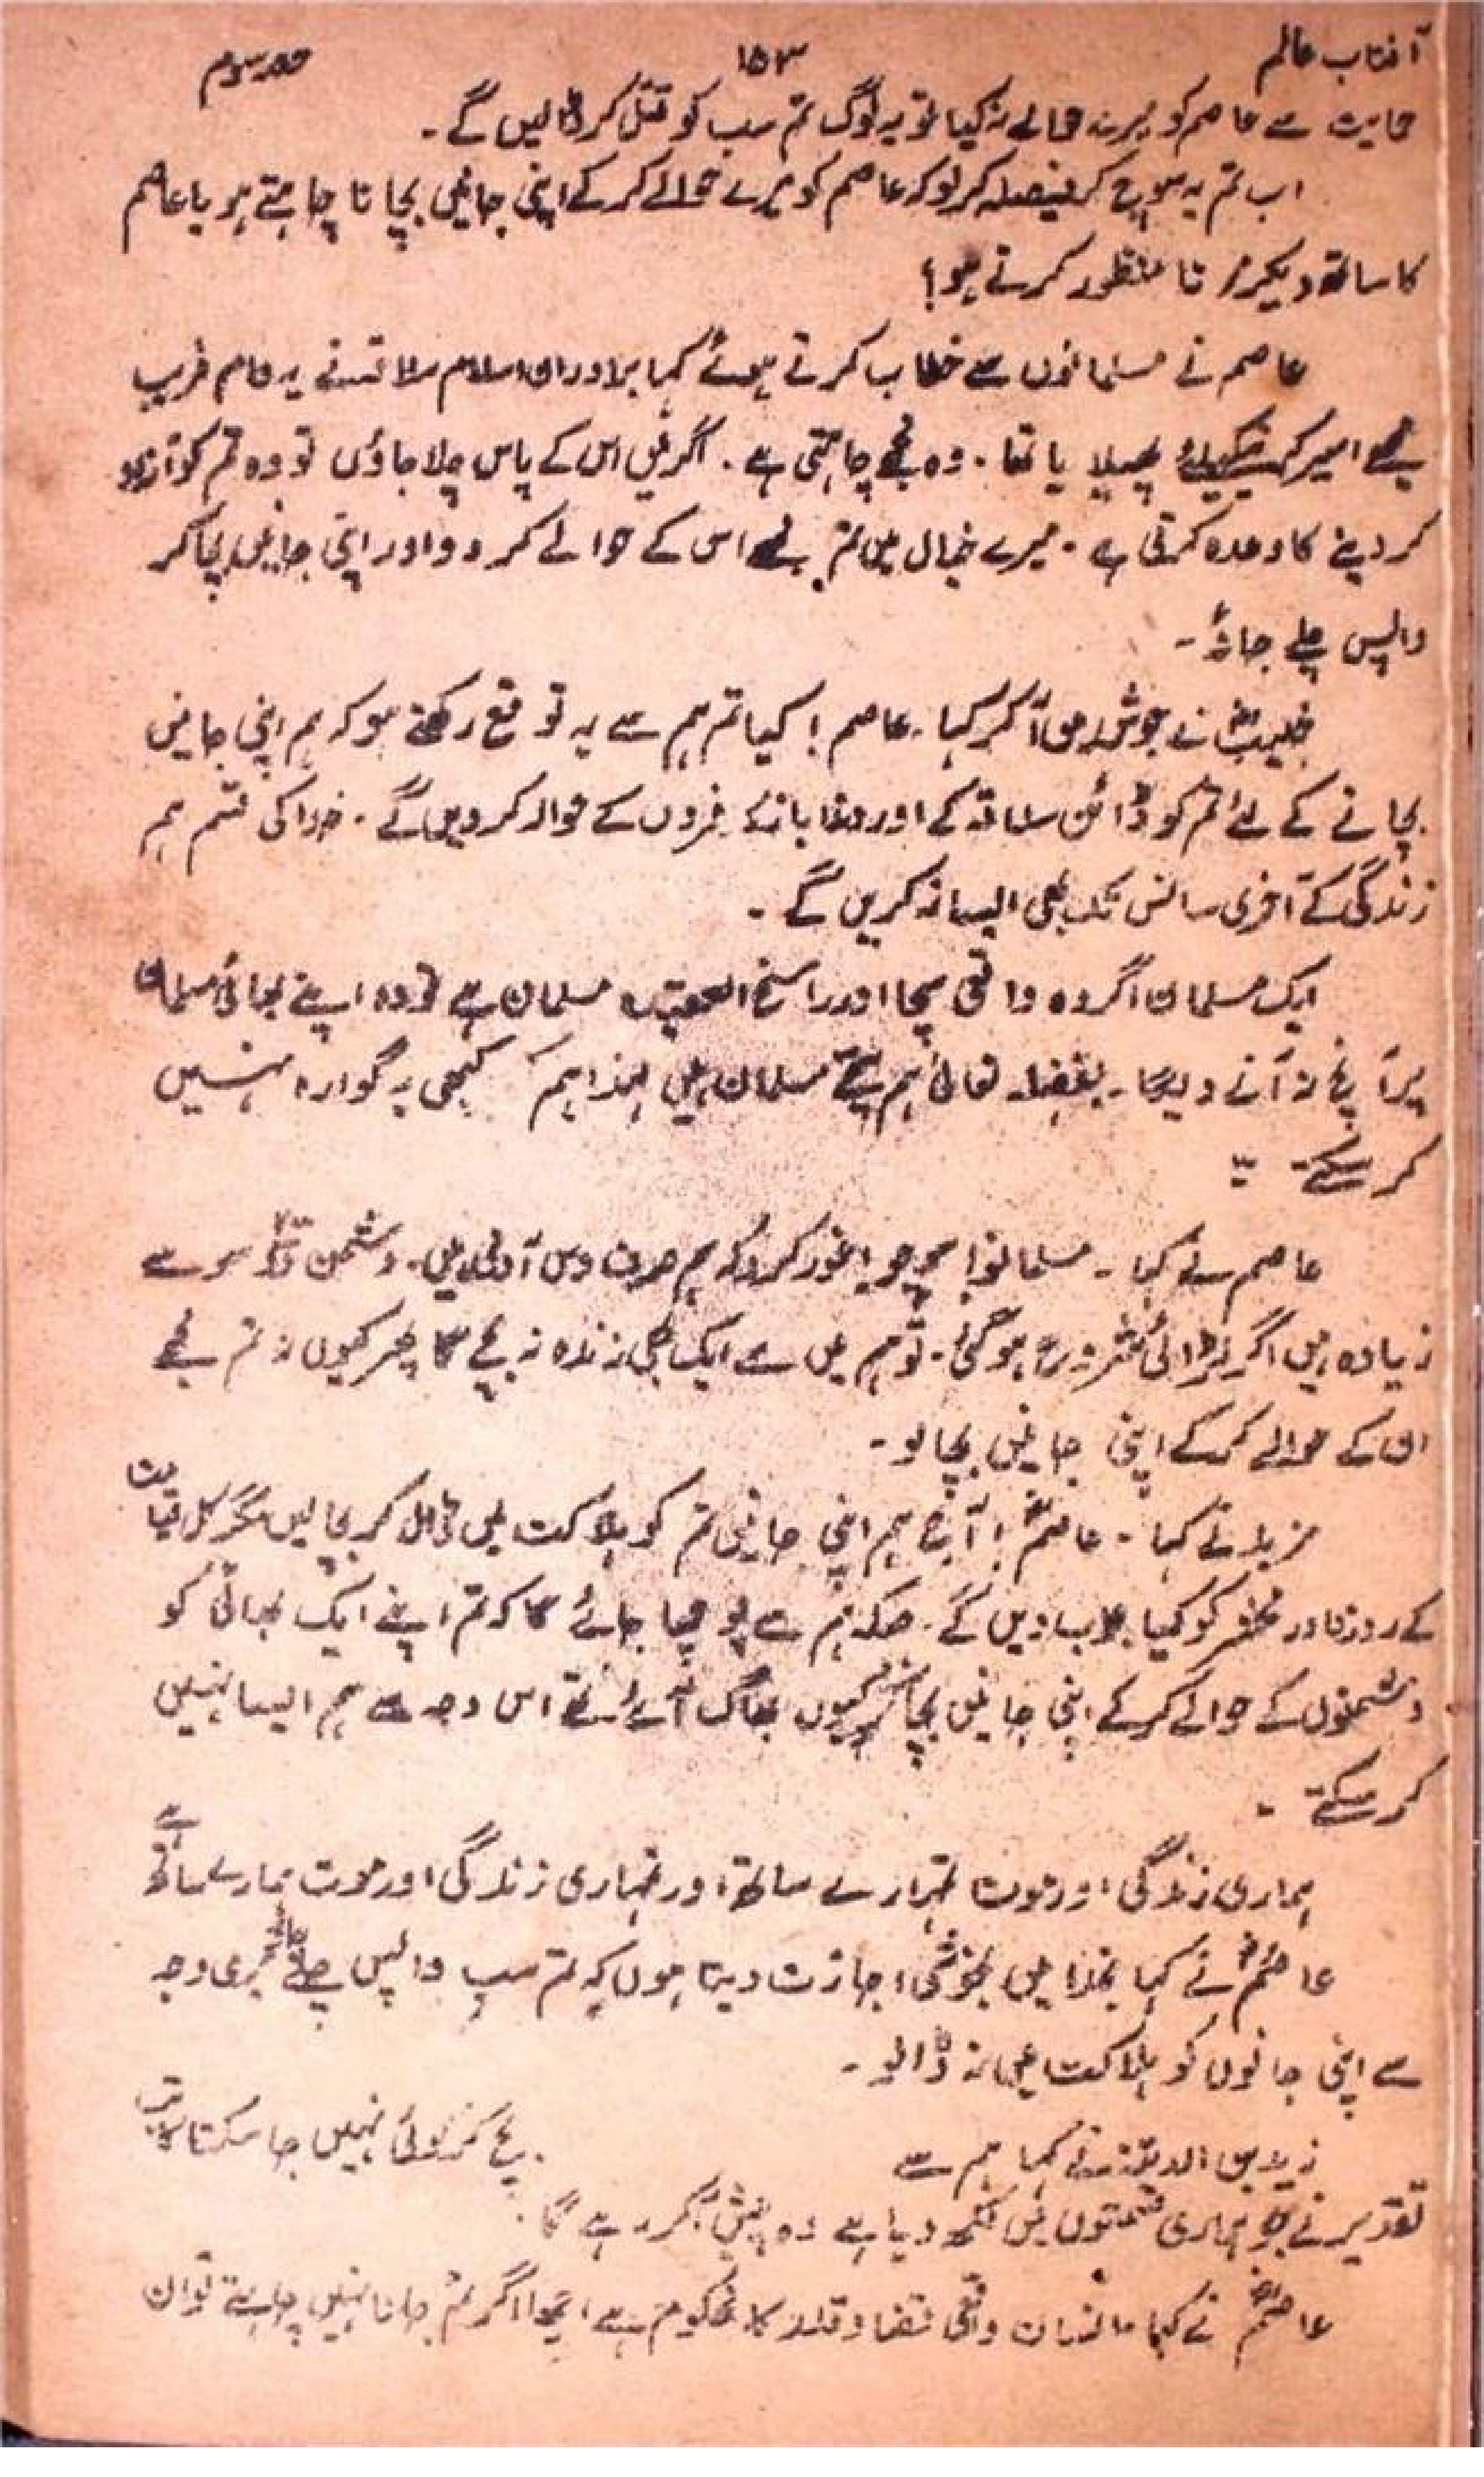 آفتاب عالم ۱۵۳ حصہ سوم
حمایت سے عاصم کو میرے حوالے نہ کیا تو یہ لوگ تم سب کو قتل کر ڈالیں گے ۔
اب تم یہ سوچ کر فیصلہ کر لو کہ عاصم کو میرے حوالے کر کے اپنی جانیں بچانا چاہتے ہو یا عاصم
کا ساتھ دیکر مرنا منظور کرتے ہو؟
عاصم نے مسلمانوں سے خطاب کرتے ہوئے کہا برادران اسلام سلاقہ نے یہ دام فریب
مجھے اسیر کرنے کیلئے پھیلایا تھا ۔ وہ مجھے چاہتی ہے ۔ اگر میں اس کے پاس چلا جاؤں تو وہ تم کو آزاد
کر دینے کا وعدہ کرتی ہے ۔ میرے خیال میں تم مجھے اس کے حوالے کر دو اور اپنی جانیں بچا کر
واپس چلے جاؤ ۔
خبیبؓ نے جوش میں آ کر کہا ۔ عاصم ! کیا تم ہم سے یہ توقع رکھتے ہو کہ ہم اپنی جانیں
بچانے کے لئے تم کو ڈائن سلاقہ کے اور دغا باز کافروں کے حوالہ کر دیں گے ۔ خدا کی قسم ہم
زندگی کے آخری سانس تک بھی ایسا نہ کریں گے ۔
ایک مسلمان اگر وہ واقعی سچا اور راسخ العقیدہ مسلمان ہے تو وہ اپنے بھائی مسلمان
پر آنچ نہ آنے دیگا ۔ بفضلہ تعالیٰ ہم سچے مسلمان ہیں لہٰذا ہم کبھی یہ گوارہ نہیں
کر سکتے ۔
عاصم نے کہا ۔ مسلمانو! سوچو! غور کرو کہ ہم صرف دس آدمی ہیں ۔ دشمن سو سے
زیادہ ہیں اگر لڑائی شروع ہو گئی ۔ تو ہم میں سے ایک بھی زندہ نہ بچے گا پھر کیوں نہ تم مجھے
ان کے حوالے کر کے اپنی جانیں بچا لو ۔
مزید نے کہا ۔ عاصمؓ ! آج ہم اپنی جانیں تم کو ہلاکت میں ڈال کر بچا لیں مگر کل قیامت
کے روز داور محشر کو کیا جواب دیں گے ۔ جبکہ ہم سے پوچھا جائے گا کہ تم اپنے ایک بھائی کو
دشمنوں کے حوالے کر کے اپنی جانیں بچا کر کیوں بھاگ آئے تھے اس وجہ سے ہم ایسا نہیں
کر سکتے ۔
ہماری زندگی اور موت تمہارے ساتھ اور تمہاری زندگی اور موت ہمارے ساتھ ہے
عاصمؓ نے کہا بخدا میں بخوشی اجازت دیتا ہوں کہ تم سب واپس چلے جاؤ میری وجہ
سے اپنی جانوں کو ہلاکت میں نہ ڈالو ۔
زید بن الدثنہ نے کہا ہم سے بچ کر کوئی نہیں جا سکتا
تقدیر نے جو ہماری قسمتوں میں لکھ دیا ہے وہ پیش آ کر رہے گا ۔
عاصمؓ نے کہا ۔ انسان واقعی قضا و قدر کا محکوم ہے ، اچھا اگر تم جانا نہیں چاہتے تو ان